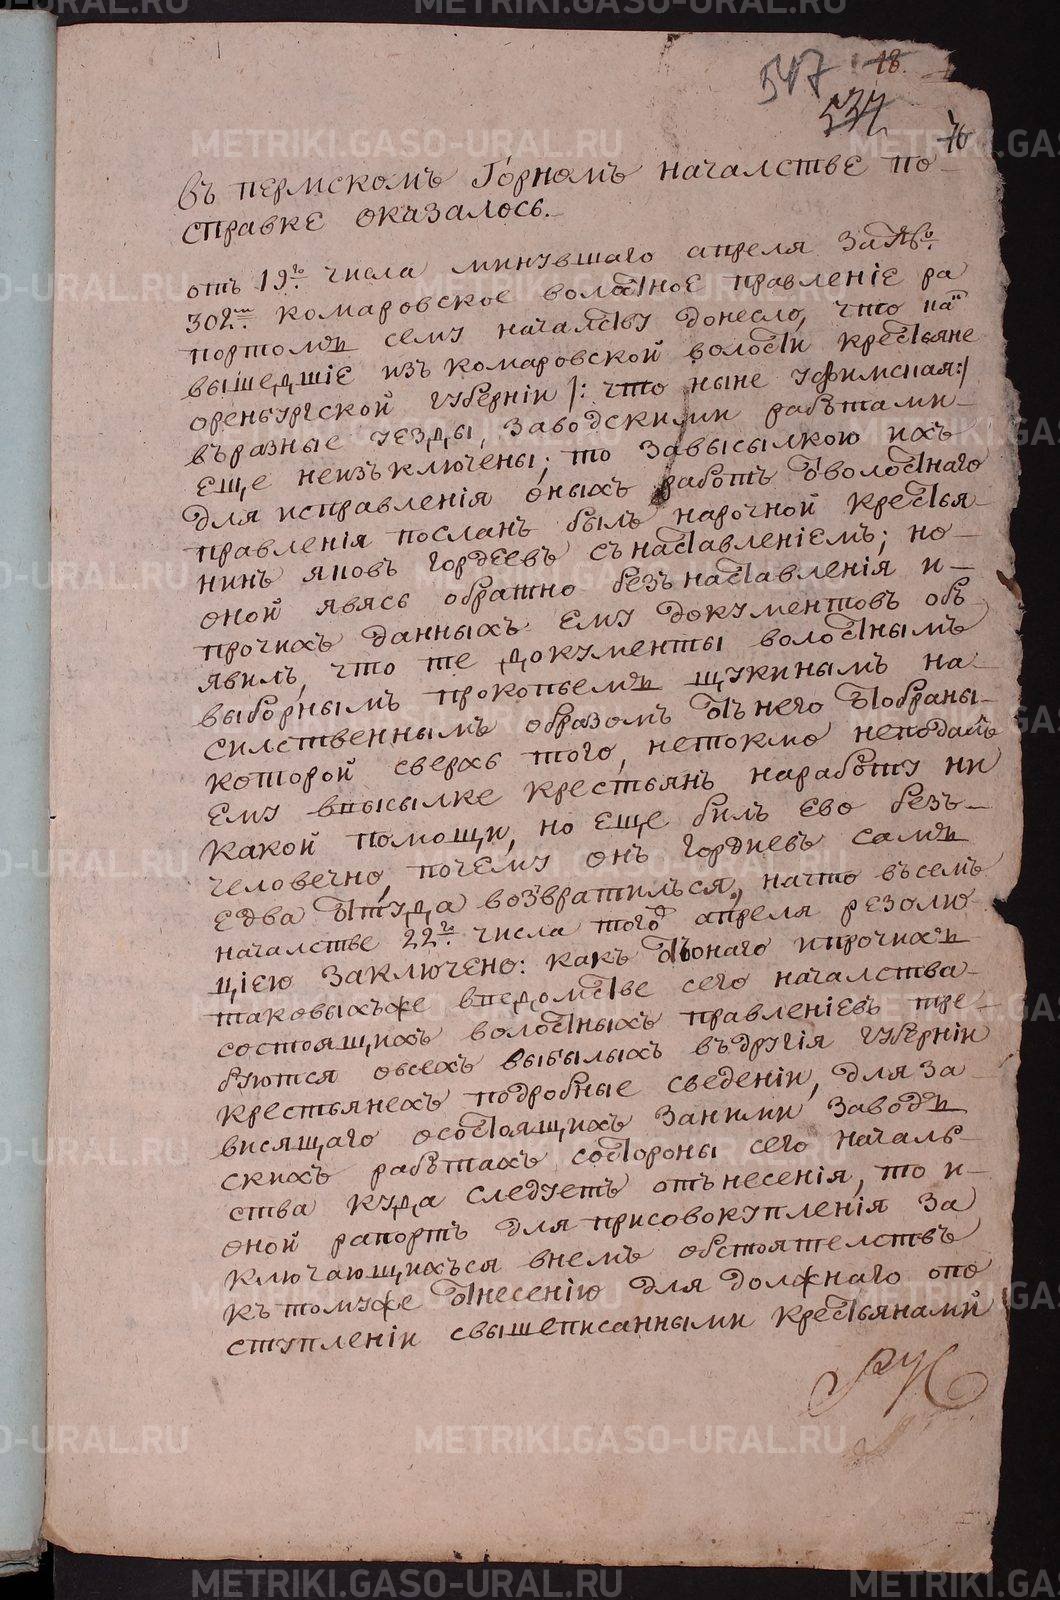 547 18.
532
76
въ пермскомъ Горномъ началстве по
справке оказалось.
отъ 19го. числа минувшаго апреля за №о.
302м комаровское волостное правленіе ра
портомъ сему началству донесло, что на
вышедшіе изъ комаровской волости крестьяне
оренбургской губерніи /: что ныне уфимская:/
въ разные уезды, заводскими работами
еще неизъключены; то завысылкою ихъ
для исправленія оныхъ работъ отволостнаго
правленія посланъ былъ нарочной крестья
нинъ яковъ гордеевъ сънаставленіемъ; но
оной явясь обратно безънаставленія и
прочихъ данныхъ ему документовъ объ
явилъ, что те документы волостнымъ
выборнымъ прокопьемъ щукинымъ на
силственнымъ образомъ отънего отобраны
которой сверхъ того, нетокмо неподалъ
ему впысылке крестьянъ наработу ни
какой помощи, но еще билъ ево безъ
человечно, почему онъ гордиевъ самъ
едва оттуда возвратилься, начто въсемъ
началстве 22го. числа того апреля резолю
цією заключено: какъ отъонаго ипрочихъ
таковыхъже введомстве сего началства
состоящихъ волостныхъ правленіевъ тре
буются овсехъ выбылыхъ въдругія губерніи
крестьянехъ подробные сведеніи, для за
висящаго осостоящихъ заними завод
скихъ работахъ состороны сего началь
ства куда следуетъ отънесенія, то и
оной рапортъ для присовокупленія за
ключающихъся внемъ обстоятелствъ
къ томуже отнесенію для должнаго опо
ступленіи свышеписанными крестьянами
METRIKI.GASO-URAL.RU